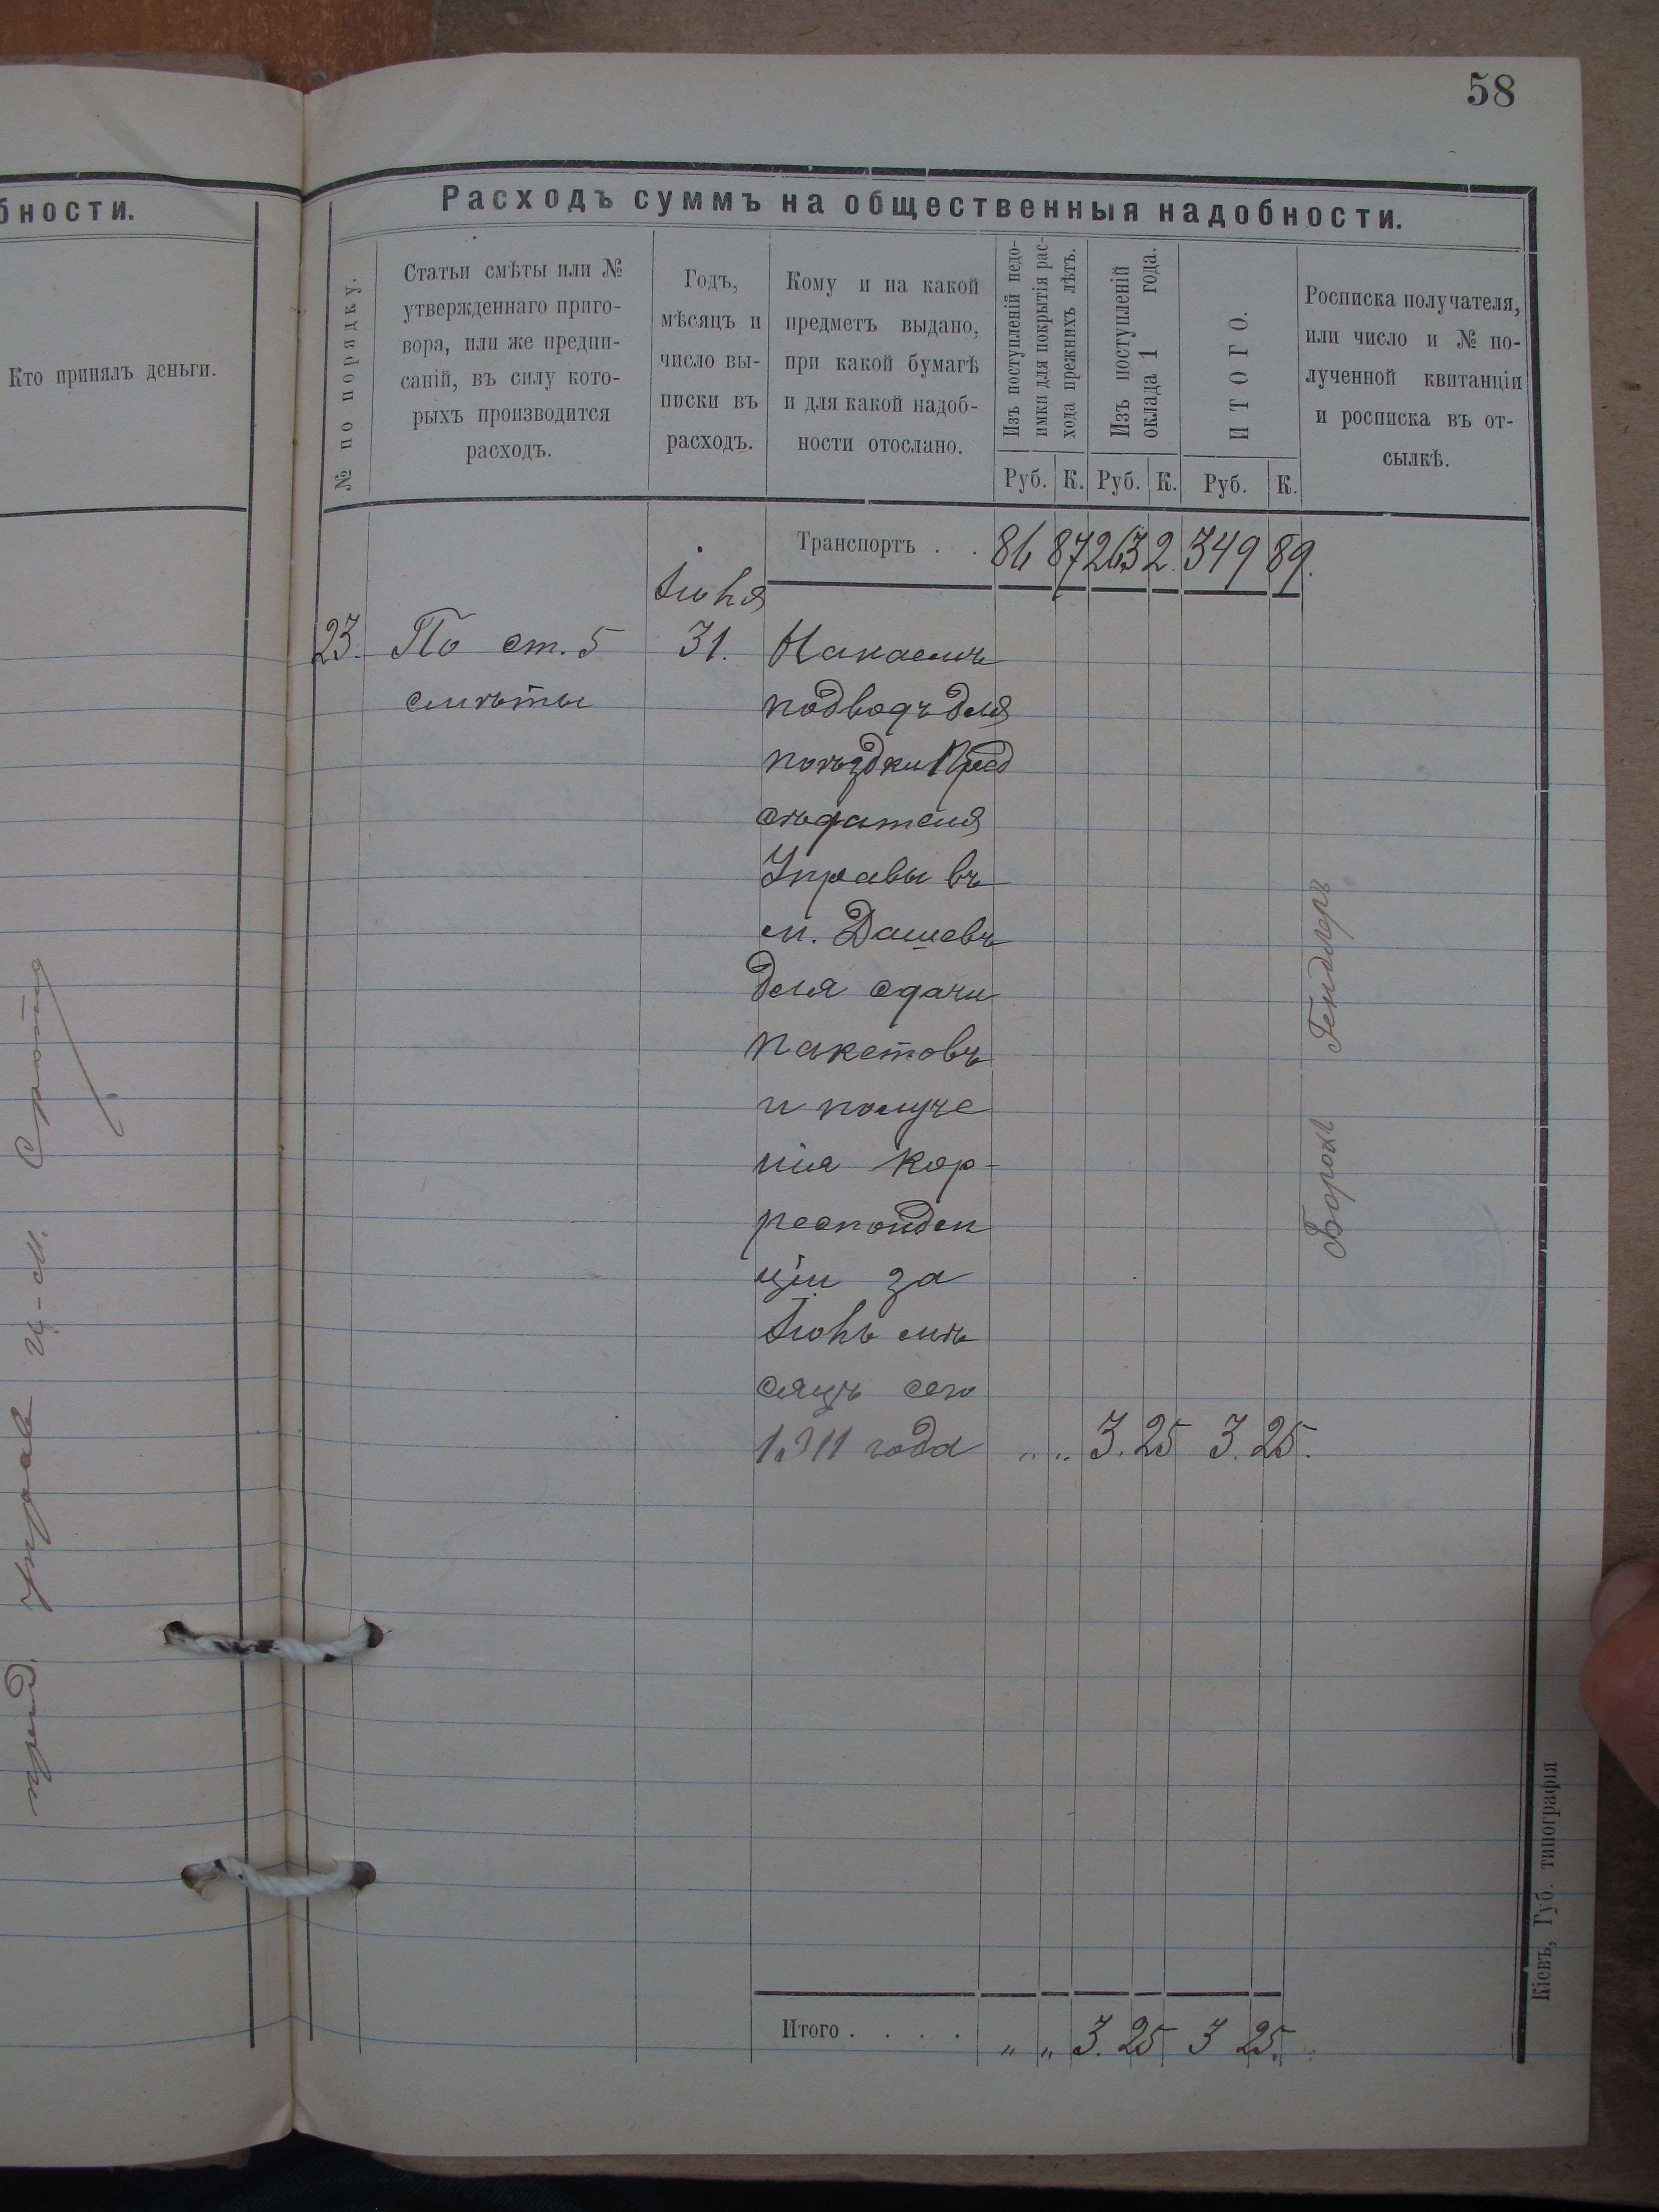 58
бности.
Кто принялъ деньги.
Расходъ суммъ на общественныя надобности.
№ по порядку.
Статьи смѣты или №
утвержденнаго приго-
вора, или же предпи-
саній, въ силу кото-
рыхъ производится
расходъ.
Годъ,
мѣсяцъ и
число вы-
писки въ
расходъ.
Кому и на какой
предметъ выдано,
при какой бумагѣ
и для какой надоб-
ности отослано.
Изъ поступленій недо-
имки для покрытія рас-
хода прежнихъ лѣтъ.
Изъ поступленій
оклада 1 года.
ИТОГО.
Росписка получателя,
или число и № по-
лученной квитанціи
и росписка въ от-
сылкѣ.
Руб. К. Руб. К. Руб. К.
Транспортъ . . 86 87 263 2. 349 89.
23. По ст. 5
смѣты
31.
подводъ для
поѣздки Пред
сѣдателя
Управы въ
м. Дашевъ
для сдачи
пакетовъ
и получе
нія кор-
респонден
ціи за
мѣ
сяцъ сего
1911 года „ „ 3. 25 3. 25.
Гендлеръ
Итого . . . . „ „ 3. 25 3 25.
Кіевъ, Губ. типографія